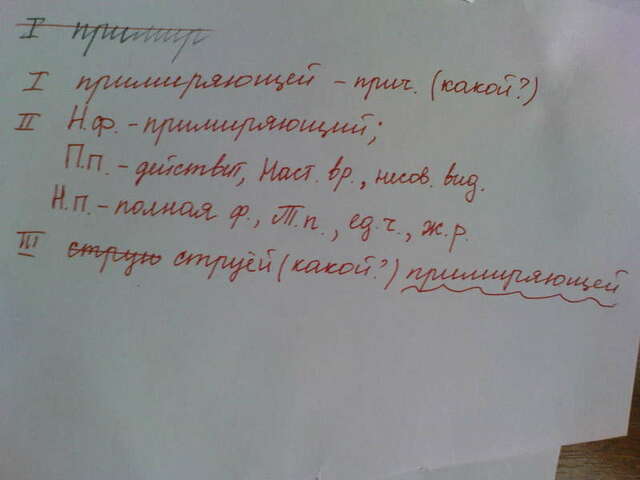 I примир
I примиряющей – прич. (какой?)
II Н.ф. – примиряющий;
П.п. – действит, Наст. вр., несов. вид.
Н.п. – полная ф., Т.п., ед.ч., ж.р.
III струю струёй (какой?) примиряющей